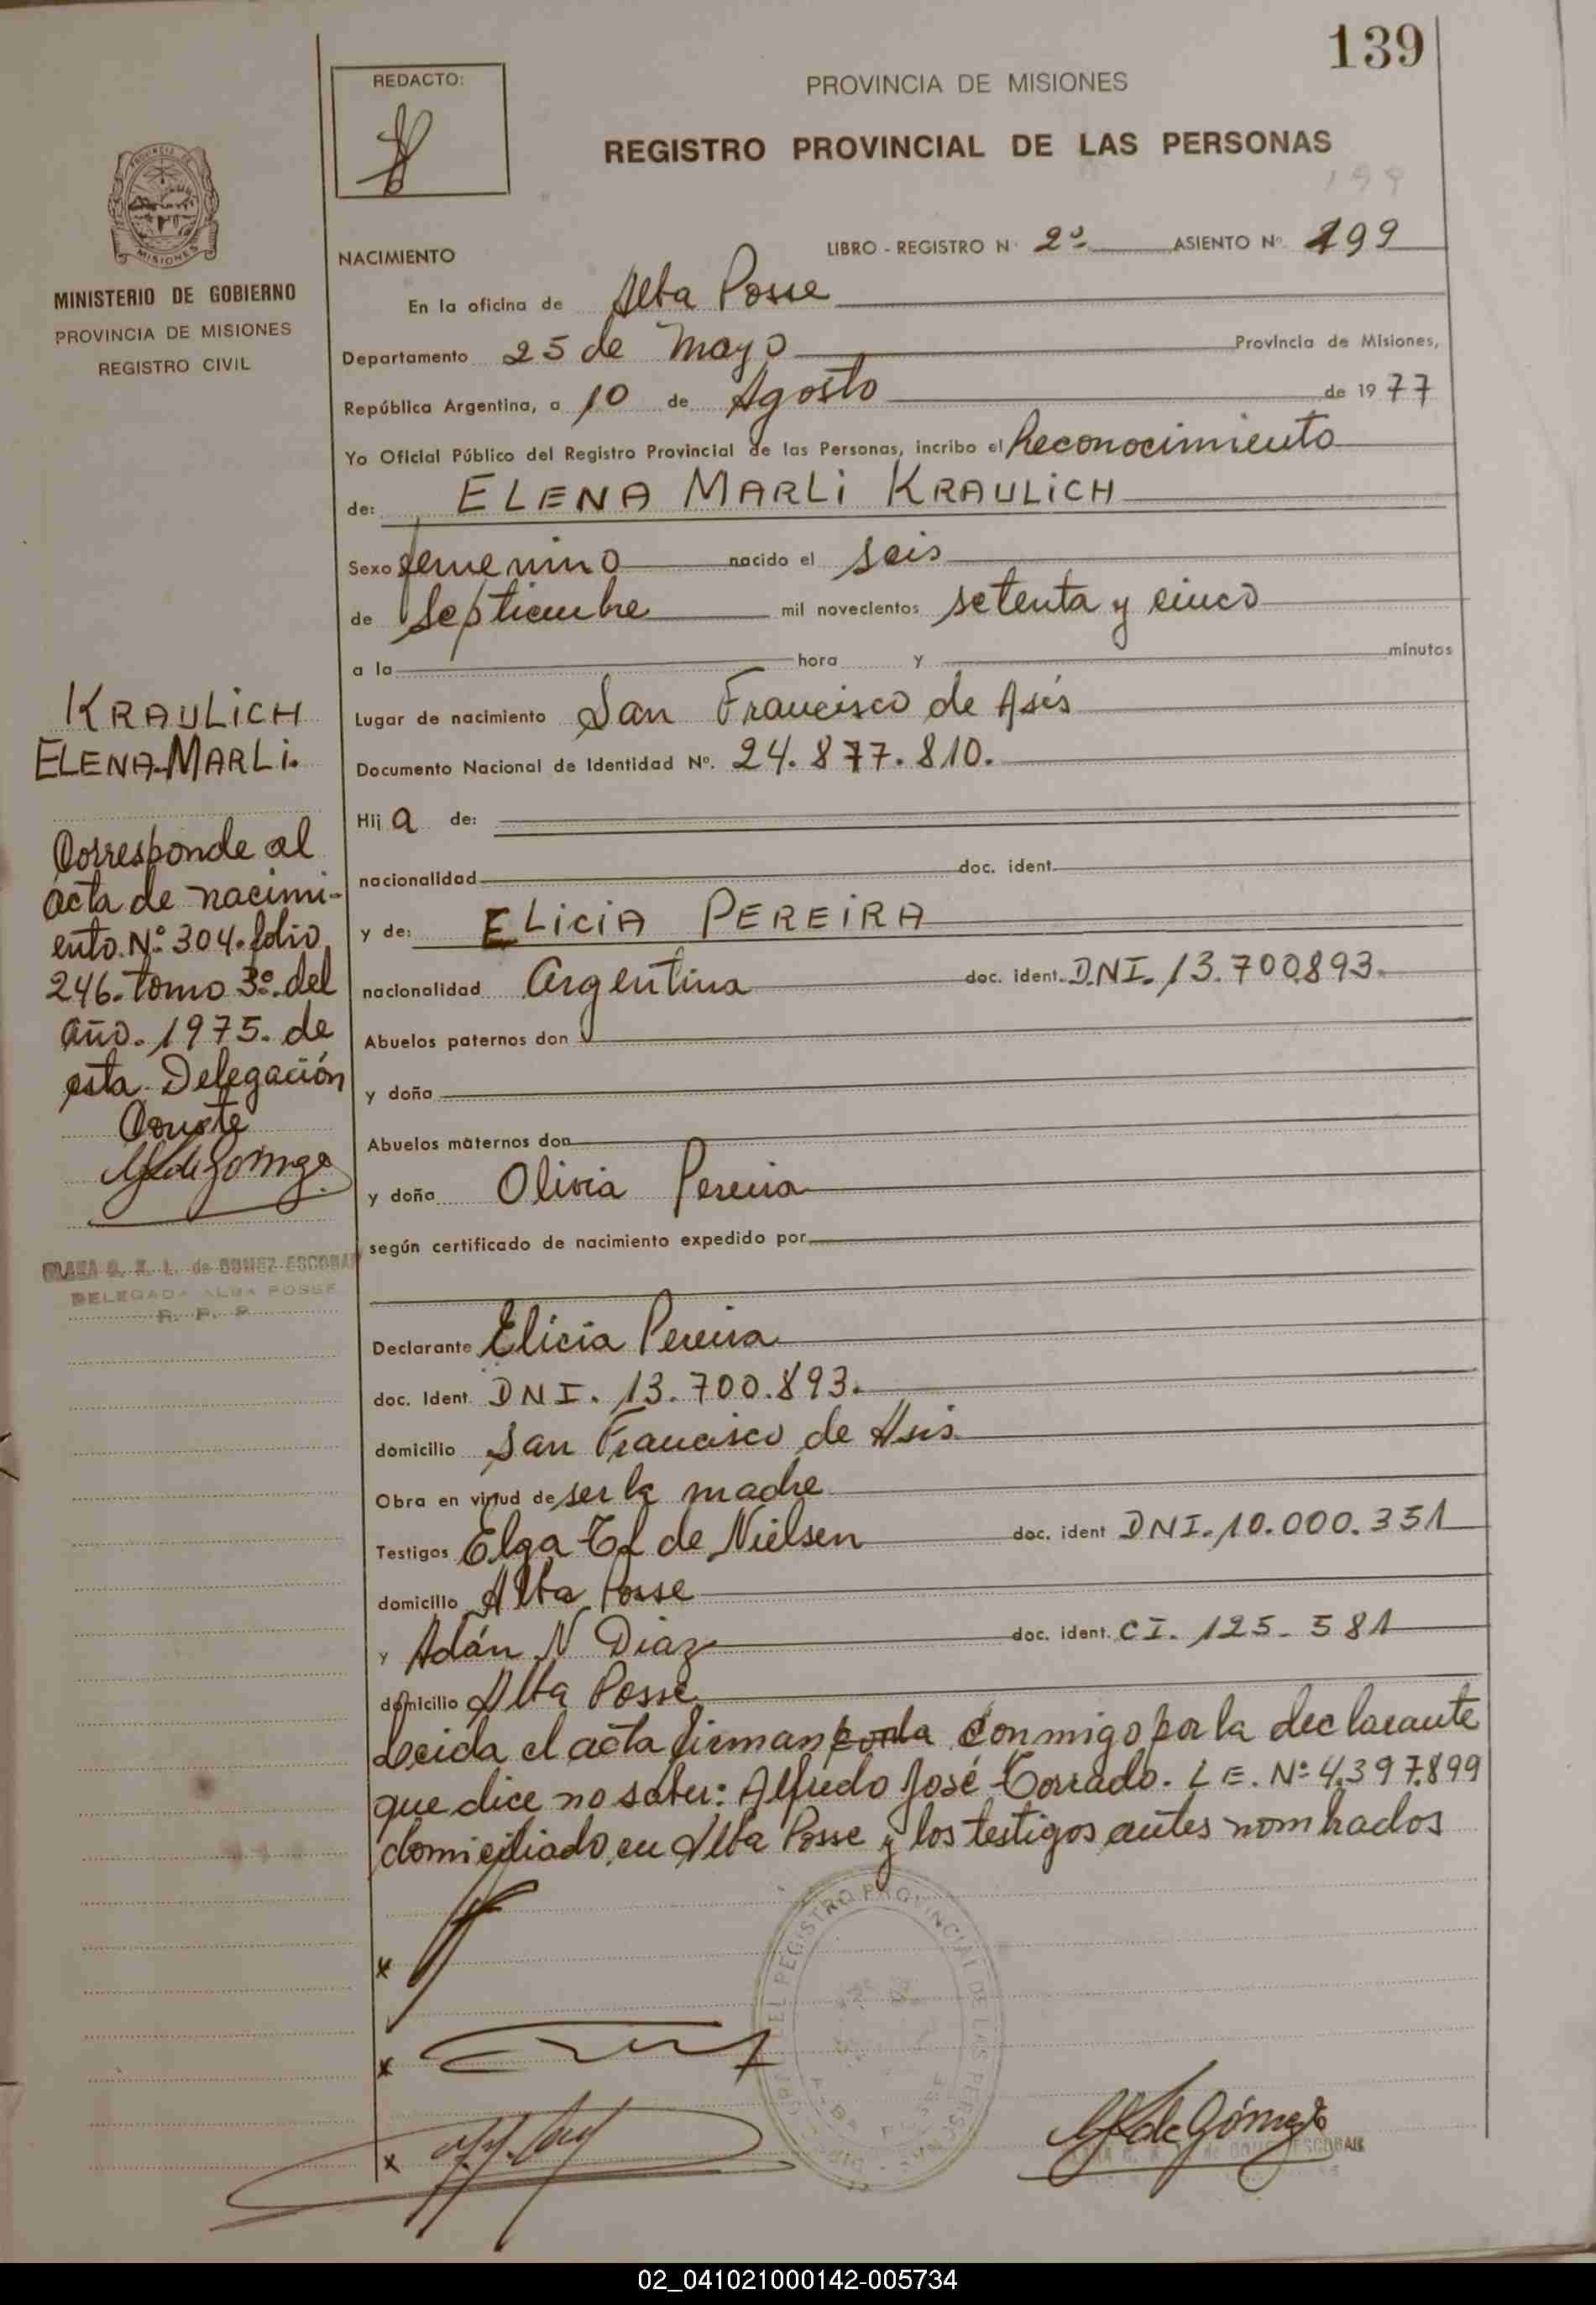 139
REDACTO:
PROVINCIA DE MISIONES
REGISTRO PROVINCIAL DE LAS PERSONAS
199
NACIMIENTO
LIBRO - REGISTRO N· 2º ASIENTO Nº 199
MINISTERIO DE GOBIERNO
PROVINCIA DE MISIONES
REGISTRO CIVIL
En la oficina de Alba Posse
Departamento 25 de Mayo Provincia de Misiones,
República Argentina, a 10 de Agosto de 1977
Yo Oficial Público del Registro Provincial de las Personas, incribo el Reconocimiento
de: ELENA MARLI KRAULICH
Sexo femenino nacido el seis
de Septiembre mil novecientos setenta y cinco
a la hora y minutos
Lugar de nacimiento San Francisco de Asís
Documento Nacional de Identidad Nº. 24.877.810.
Hij a de:
nacionalidad doc. ident.
y de: ELICIA PEREIRA
nacionalidad Argentina doc. ident. D.N.I. 13.700.893.
Abuelos paternos don
y doña
Abuelos maternos don
y doña Olivia Pereira
según certificado de nacimiento expedido por
Declarante Elicia Pereira
doc. Ident. DNI. 13.700.893.
domicilio San Francisco de Asis
Obra en virtud de ser la madre
Testigos Elga de Nielsen doc. ident DNI. 10.000.351
domicilio Alba Posse
y Adán N Diaz doc. ident. CI. 125.581
domicilio Alba Posse
Leida el acta firman conmigo por la declarante
que dice no saber: Alfredo José Torrado. L E. Nº 4.397.899
domiciliado en Alba Posse y los testigos antes nombrados
KRAULICH
ELENA-MARLI.
Corresponde al
acta de nacimi-
ento Nº 304. folio
246. tomo 3º. del
año. 1975. de
esta Delegación
Conste
de GOMEZ ESCOBAR
DELEGADA ALBA POSSE
R. P. P.
x
x
x
DEL REGISTRO PROVINCIAL DE LAS PERSONAS
de GOMEZ ESCOBAR
02_041021000142-005734